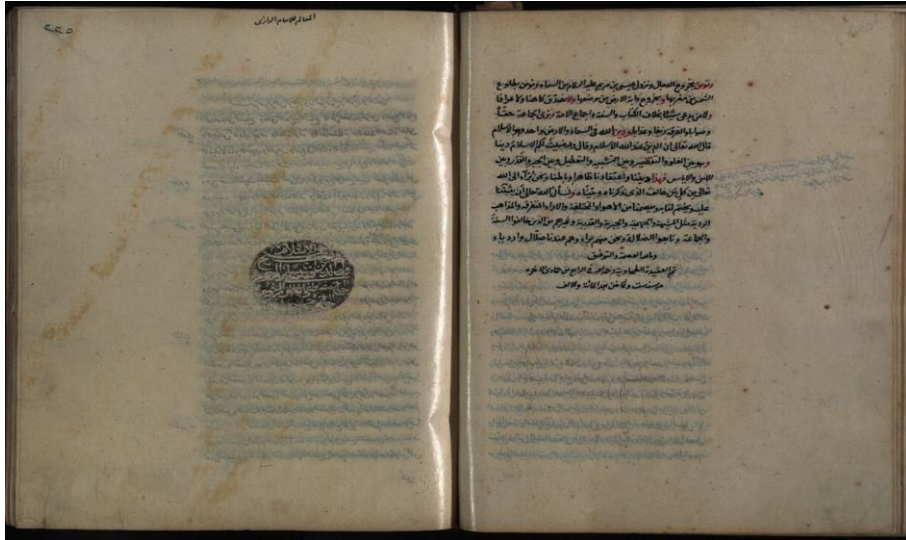 ونؤمن بخروج الدجال ونزول عيسى بن مريم عليه السلام من السماء ونؤمن بطلوع
الشمس من مغربها وبخروج دابة الارض من موضعها ولا نصدق كاهنا ولا عرافا
ولا من يدعى شيئا بخلاف الكتاب والسنة واجماع الامة ونرى الجماعة حقا
وصوابا والفرقة زيغا وعذابا ودين الله فى السماء والارض واحد وهو الاسلام
قال الله تعالى ان الدين عند الله الاسلام وقال ورضيت لكم الاسلام دينا
وهو بين الغلو والتقصير وبين التشبيه والتعطيل وبين الجبر والقدر وبين
الامن والاياس فهذا ديننا واعتقادنا ظاهرا وباطنا ونحن برآء الى الله
تعالى من كل من خالف الذى ذكرناه وبيناه ونسأل الله تعالى ان يثبتنا
عليه ويختم لنا به ويعصمنا من الاهواء المختلفة والاراء المتفرقة والمذاهب
الردية مثل المشبهة والجهمية والجبرية والقدرية وغيرهم من الذين خالفوا السنة
والجماعة وتابعوا الضلالة ونحن منهم برآء وهم عندنا ضلال واردياء
وبالله العصمة والتوفيق
تم العقيدة الطحاوية فى الرابع من جمادى الاخره
سنة ست وثمانين بعد المائة والالف
المعالم للامام الرازى
٢٢٥